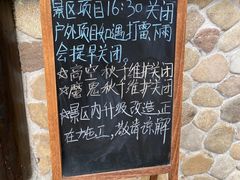 景区项目16:30关闭
户外项目如遇打雷下雨
会提早关闭.
☆高空秋千维护关闭
☆魔鬼秋千维护关闭
☆景区内升级改造,正
在施工,敬请谅解